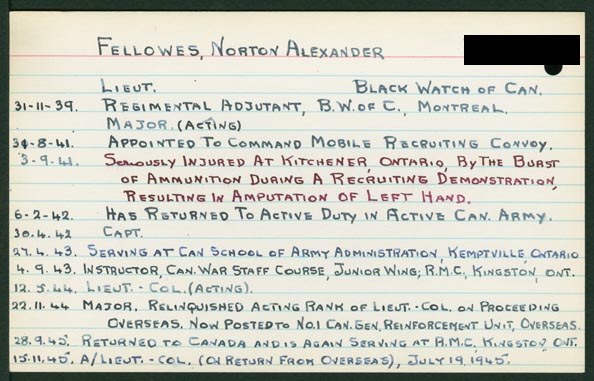 FELLOWES, NORTON ALEXANDER
LIEUT. BLACK WATCH OF CAN.
31-11-39. REGIMENTAL ADJUTANT, B.W. OF C., MONTREAL.
MAJOR. (ACTING)
30-8-41. APPOINTED TO COMMAND MOBILE RECRUITING CONVOY.
3-9-41. SERIOUSLY INJURED AT KITCHENER, ONTARIO, BY THE BURST
OF AMMUNITION DURING A RECRUITING DEMONSTRATION,
RESULTING IN AMPUTATION OF LEFT HAND.
6-2-42. HAS RETURNED TO ACTIVE DUTY IN ACTIVE CAN. ARMY.
30.4.42 CAPT.
27.4.43. SERVING AT CAN SCHOOL OF ARMY ADMINISTRATION, KEMPTVILLE, ONTARIO
4.9.43. INSTRUCTOR, CAN. WAR STAFF COURSE, JUNIOR WING; R.M.C., KINGSTON, ONT.
12.5.44. LIEUT.-COL. (ACTING).
22.11.44 MAJOR, RELINQUISHED ACTING RANK OF LIEUT.-COL. ON PROCEEDING
OVERSEAS. NOW POSTED TO NO.1 CAN. GEN. REINFORCEMENT UNIT, OVERSEAS.
28.9.45. RETURNED TO CANADA AND IS AGAIN SERVING AT R.M.C. KINGSTON, ONT.
15.11.45. A/LIEUT.-COL. (ON RETURN FROM OVERSEAS), JULY 19, 1945.